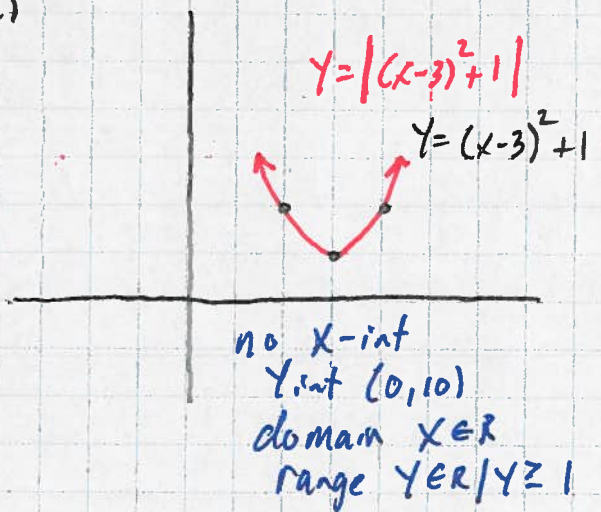 y=|(x-3)²+1|
y=(x-3)²+1
no x-int
y.int (0,10)
domain x∈R
range y∈R/y≥1